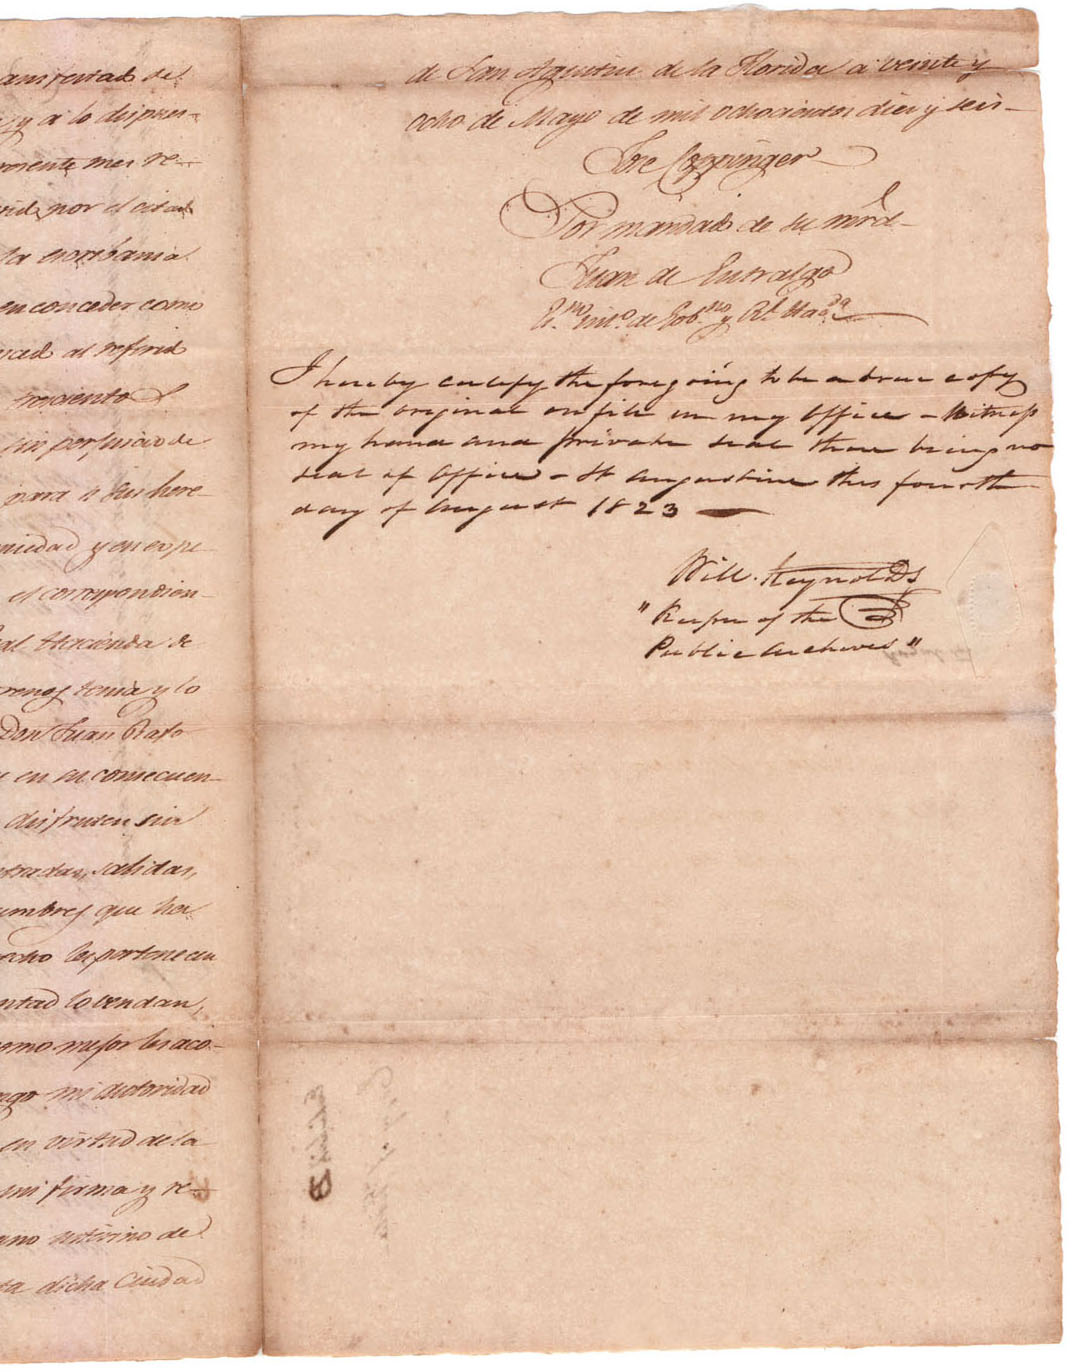 ansfertad del
y a lo dispues-
presente mes re-
por el citad
la escribania
en conceder como
merced al referid
trescientos
sin perjuicio de
para si sus here-
piedad y en espe-
el correspondien-
al Hacienda de
tenia y lo
Don Juan Bato
y en su consecuen-
disfruten sin
entradas, salidas,
tumbres que ha
echo les pertenecen
lo vendan,
como mejor les aco-
mi autoridad
en virtud de la
mi firma y re-
ano interino de
ta dicha Ciudad
de San Agustin de la Florida a veinte y
ocho de Mayo de mil ochocientos diez y seis-
Jose Coppinger
Por mandado de su mrd-
Juan de Entralgo
Es.no int.o de Gob.no y Rl. Hac.da
I hereby certify the foregoing to be a true copy
of the original on file in my Office - Witness
my hand and private seal there being no
seal of Office - St Augustine this fourth
day of August 1823 —
Will. Reynolds
"Keeper of the
Public Archives"